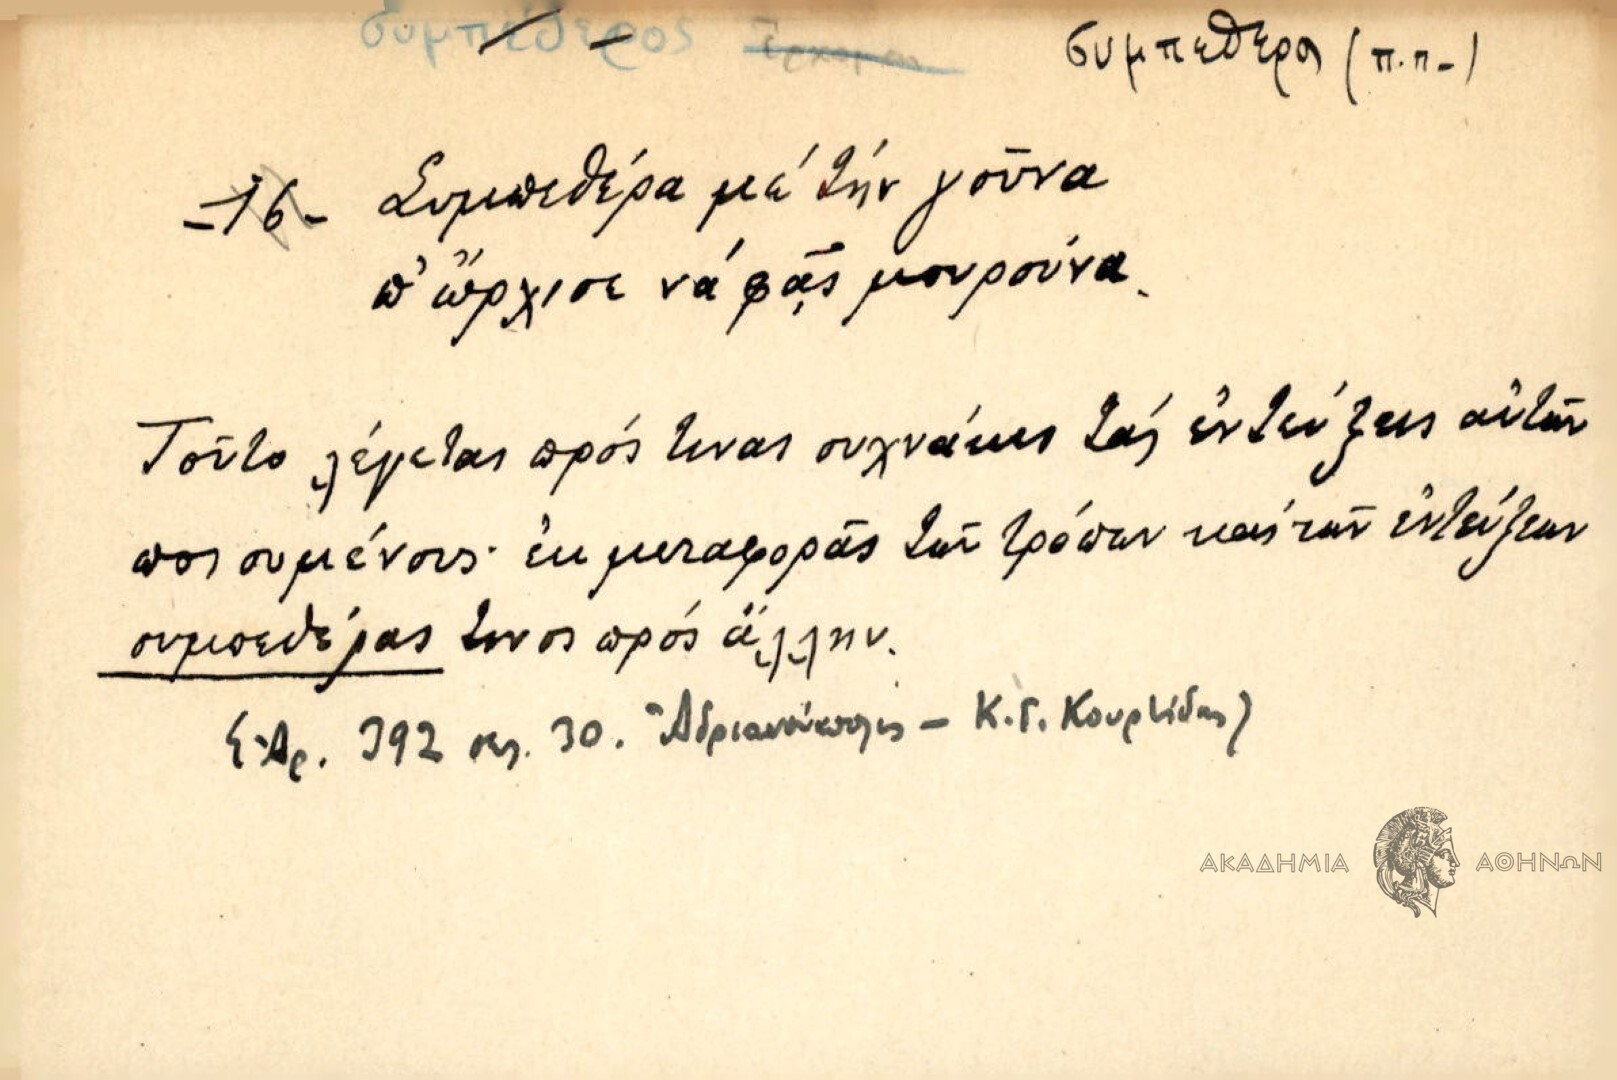 συμπέθερος ἔρχομαι
συμπεθερα (π.π.)
-16- Συμπεθέρα μέ τήν γοῦνα
π' ὤρχισε νά φᾷς μουρούνα.
Τοῦτο λέγεται πρός τινας συχνάκις τάς ἐντεύξεις αὐτῶν
ποιουμένους· ἐκ μεταφορᾶς τῶν τρόπων καί τῶν ἐντεύξεων
συμπεθέρας τινος πρός ἄλλην.
Ἀρ. 392 σελ. 30. Ἀδριανούπολις - Κ.Γ. Κουρτίδης)
ΑΚΑΔΗΜΙΑ ΑΘΗΝΩΝ